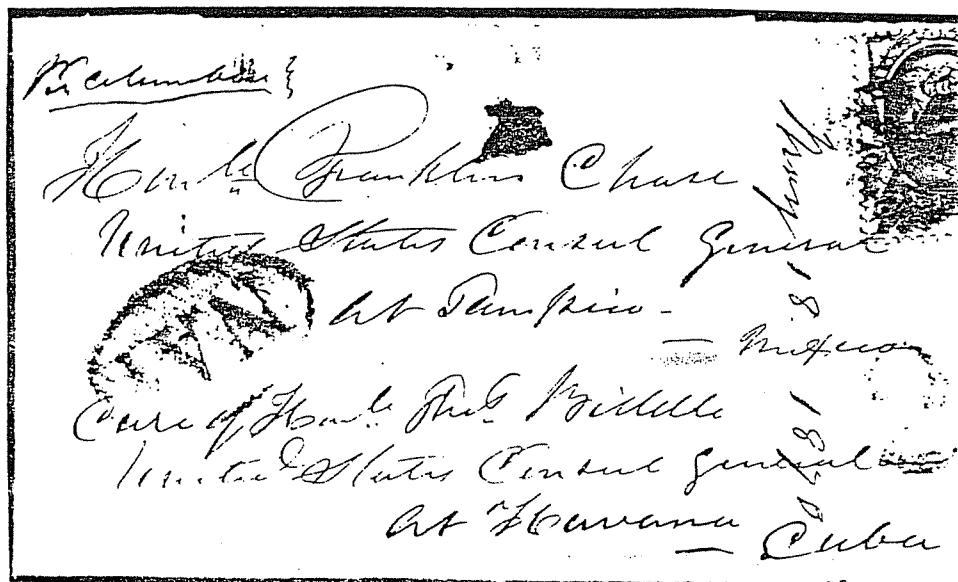 Per Columbia
Honble Franklin Chase
United States Consul General
At Tampico -
- Mexico
Care of Honble Thos Biddle
United States Consul General
At Havana
- Cuba
18 1870